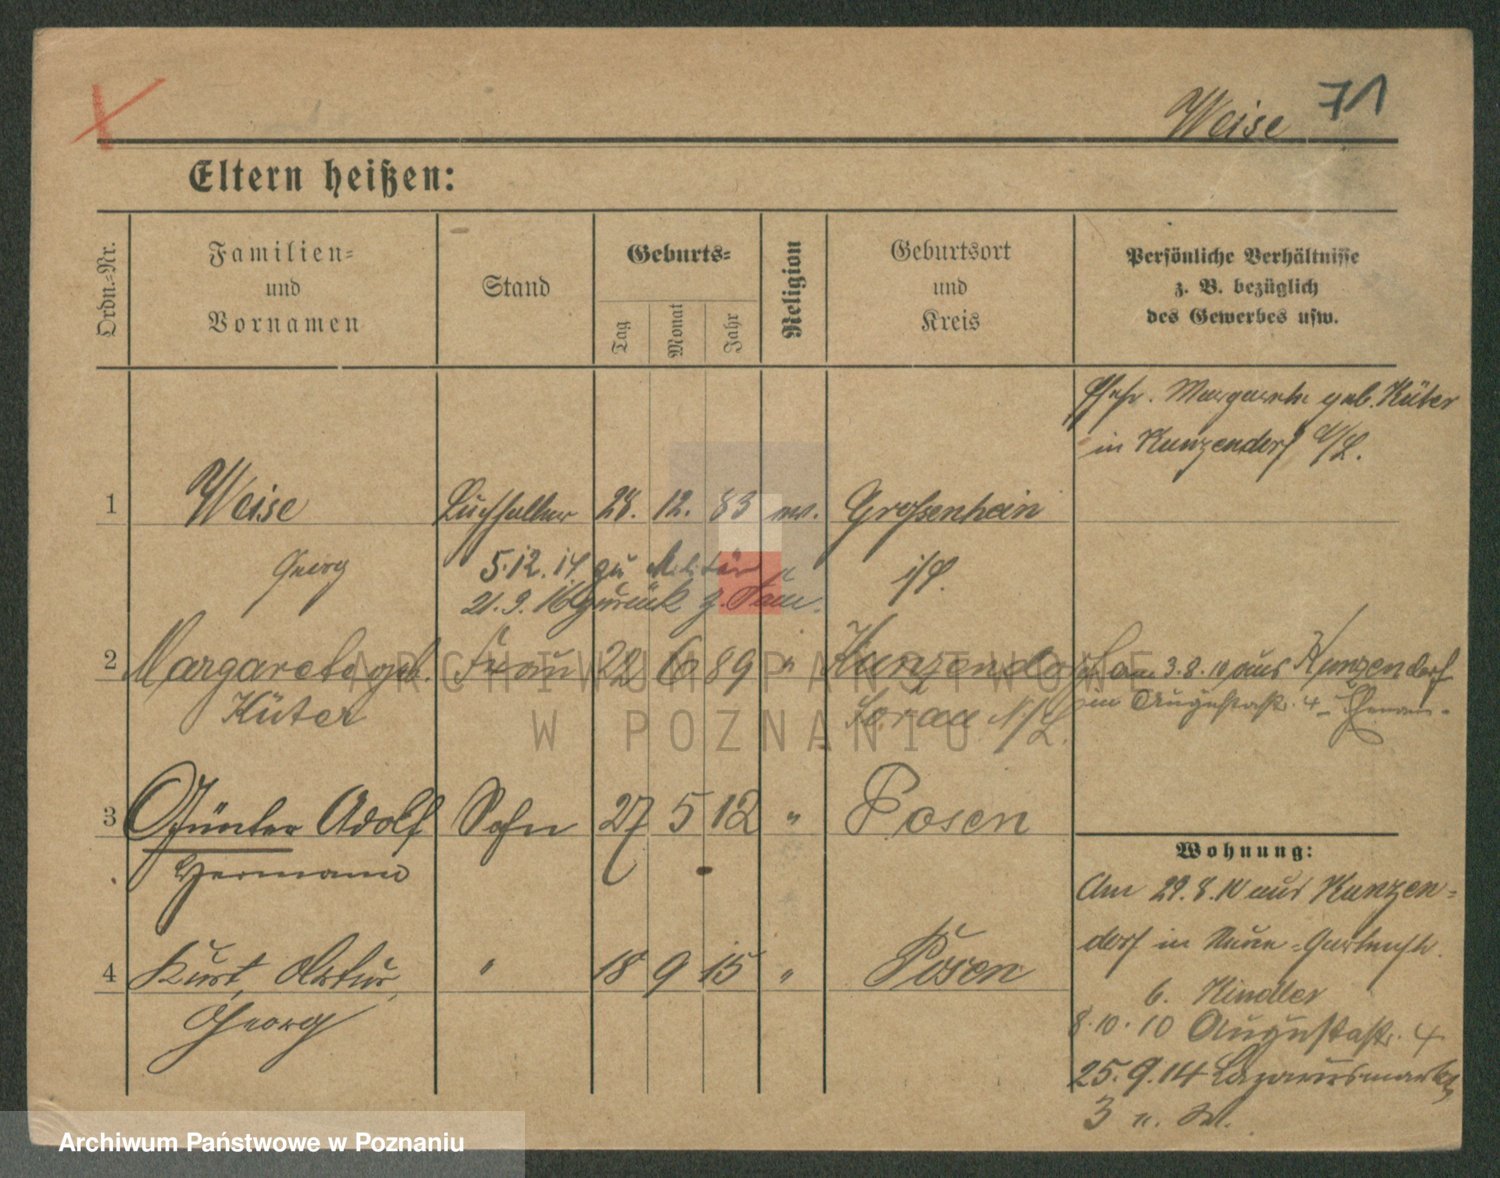 Weise 71
Eltern heißen:
Ordn.=Nr.
Familien=
und
Vornamen
Stand
Geburts=
Tag
Monat
Jahr
Religion
Geburtsort
und
Kreis
Persönliche Verhältnisse
z. B. bezüglich
des Gewerbes usw.
Margarete geb. Küter
in Kunzendorf N/L.
1 Weise Buchhalter 28. 12. 83 ev. Großenhain
Georg 5.12.14 zu Militär i/S.
21.9.16 zurück z. Fam.
2 Margarete geb. Frau 22 6 89 " Kunzendorf
Küter Sorau N/L.
am 3.8.10 aus Kunzendorf
in Augustastr. 4
3 Günter Adolf Sohn 27 5 12 " Posen
Hermann
4 Kurt, Artur, " 18 9 15 " Posen
Georg
Wohnung:
Am 29.8.10 aus Kunzen=
dorf in Neue-Gartenstr.
6. Kindler
8.10.10 Augustastr. 4
25.9.14 Lazarusmarkt
3 n. W.
ARCHIWUM PAŃSTWOWE
W POZNANIU
Archiwum Państwowe w Poznaniu